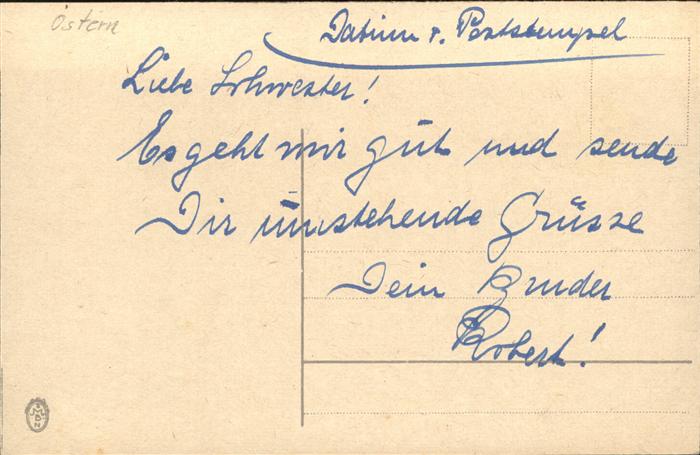 Ostern
Datum v. Poststempel
Liebe Schwester!
Es geht mir gut und sende
Dir umstehende Grüsse
Dein Bruder
Robert!